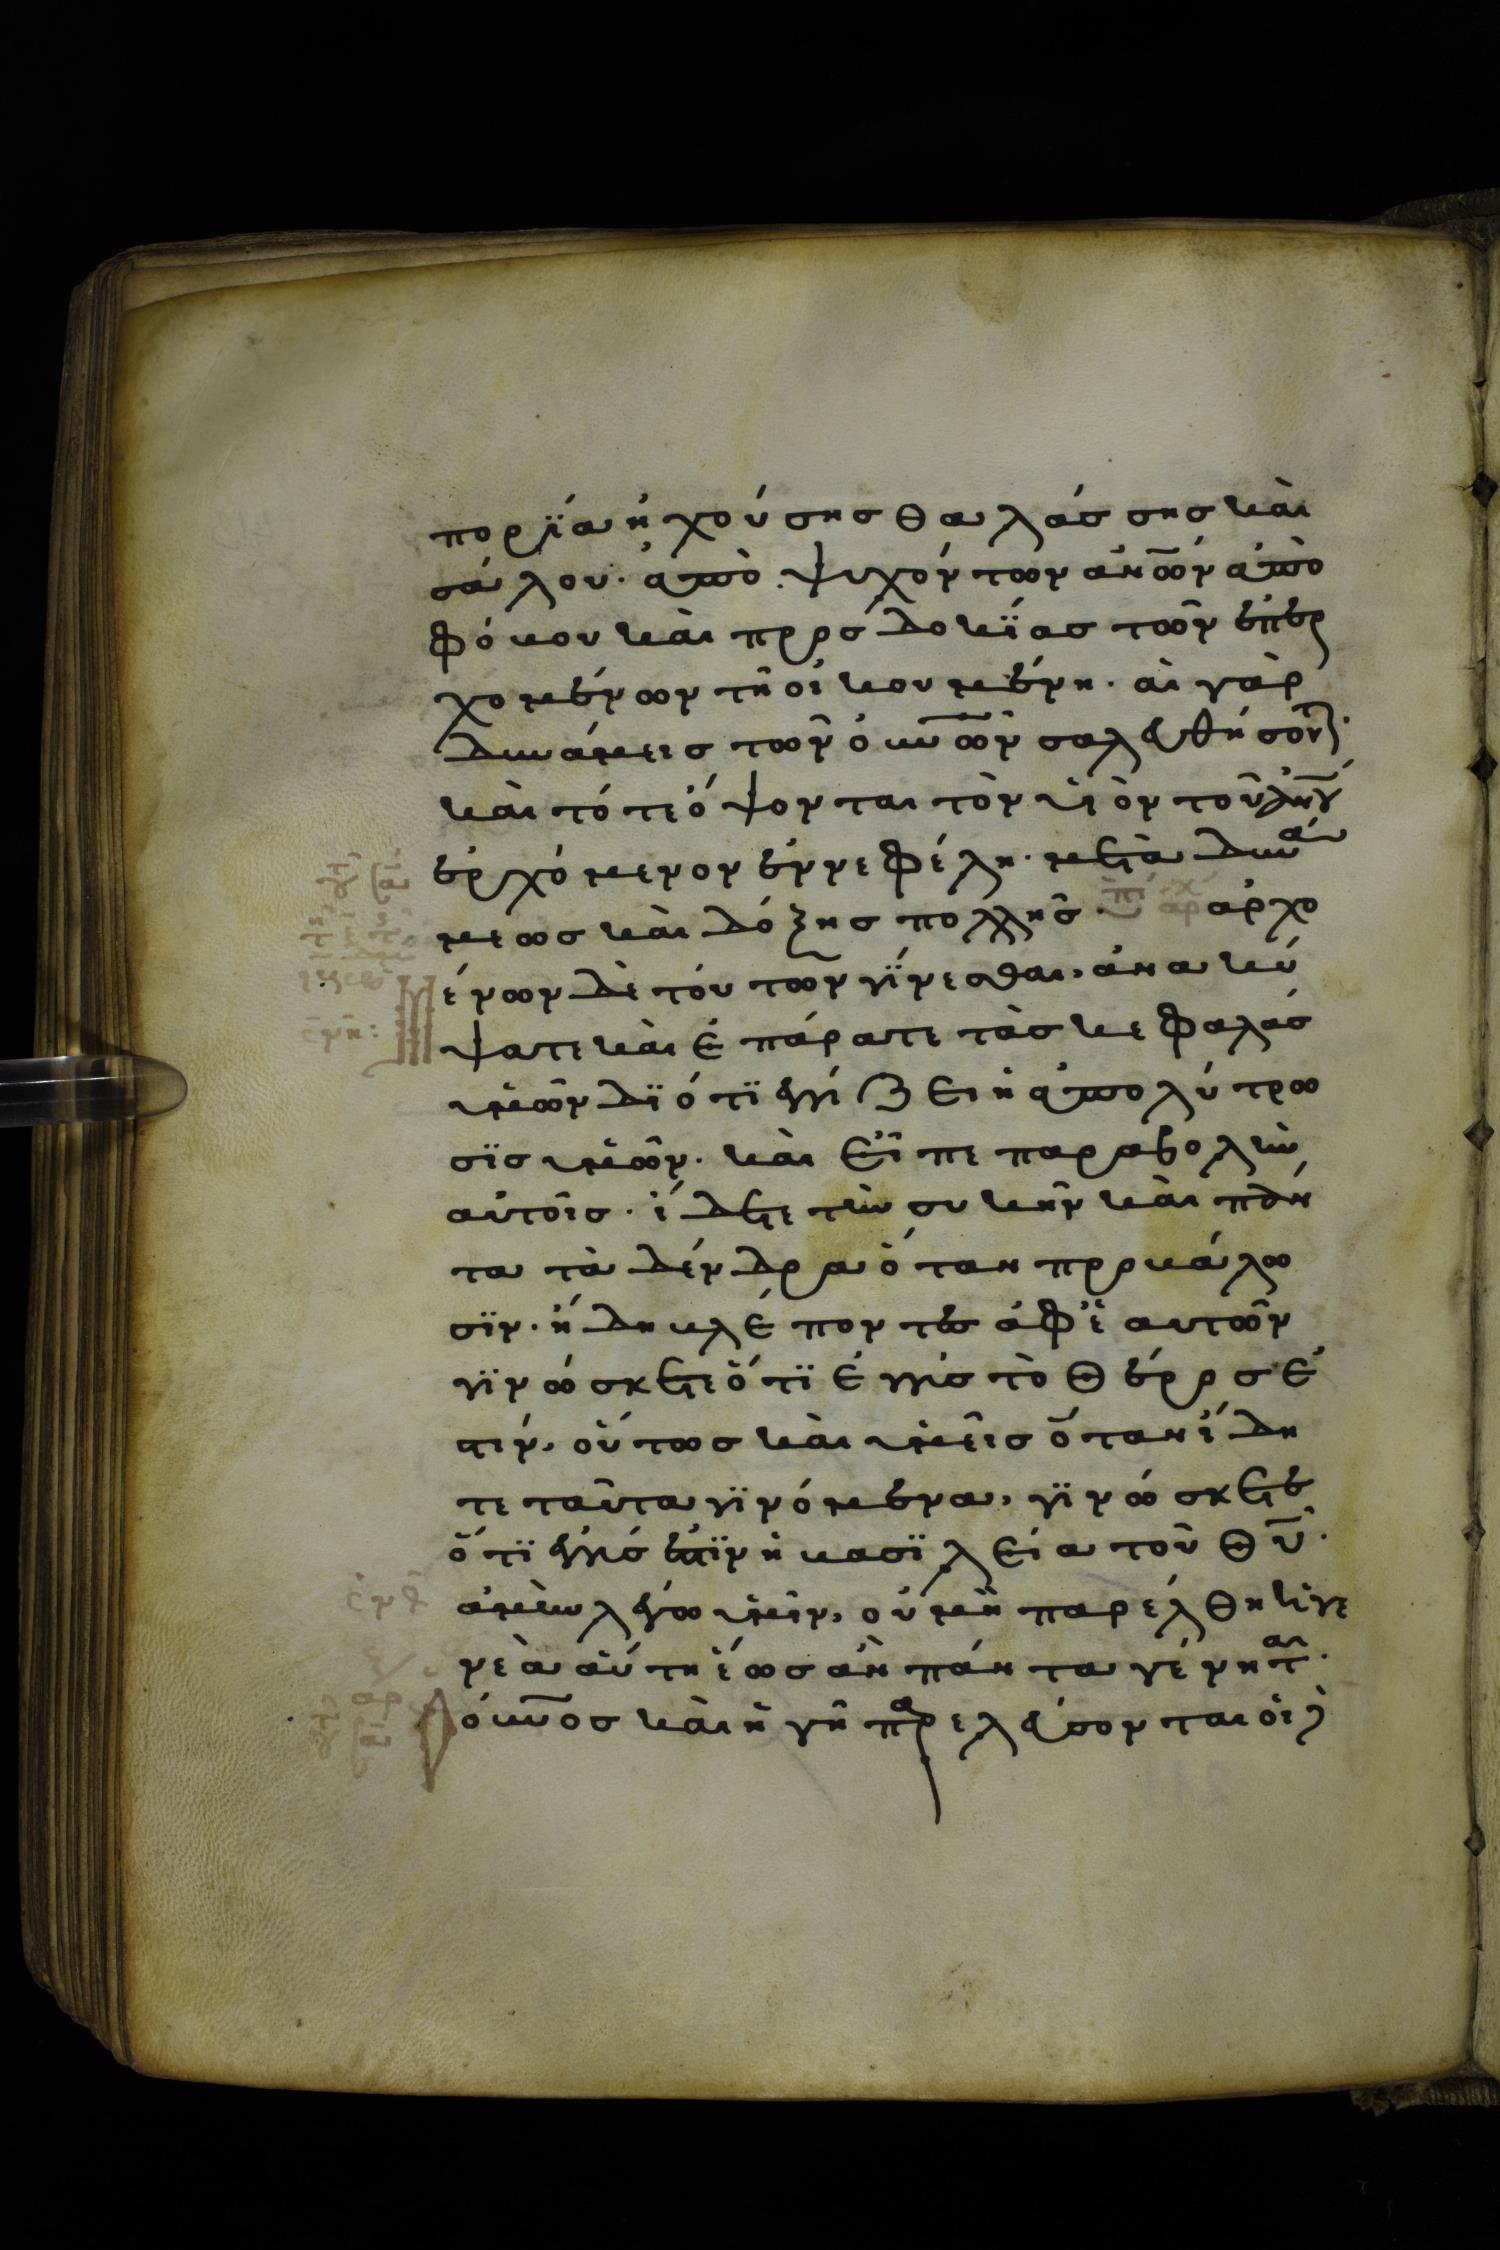 πορία ἠχούσης θαλάσσης καὶ
σάλου· ἀποψυχόντων ἀν̅ω̅ν ἀπὸ
φόβου καὶ προσδοκίας τῶν ἐπερ
χομένων τῆ οἰκουμένη· αἱ γὰρ
δυνάμεις τῶν οὐν̅ω̅ν σαλευθήσοντ
καὶ τότε ὄψονται τὸν υἱὸν τοῦ ἀν̅ο̅υ
ἐρχόμενον ἐν νεφέλη· μετὰ δυνά
μεως καὶ δόξης πολλῆς· ἀρχο
μένων δὲ τούτων γίνεσθαι, ἀνακύ
ψατε καὶ ἐπάρατε τὰς κεφαλὰς
ὑμῶν διότι ἐγγίζει ἡ ἀπολύτρω
σις ὑμῶν· καὶ εἶπε παραβολὴν
αὐτοῖς· ἴδετε τὴν συκῆν καὶ πάν
τα τὰ δένδρα ὅταν προβάλω
σιν· ἤδη βλέποντες ἀφ' ἑαυτῶν
γινώσκετε ὅτι ἐγγὺς τὸ θέρος ἐ
στιν, οὕτως καὶ ὑμεῖς ὅταν ἴδη
τε ταῦτα γινόμενα, γινώσκετε
ὅτι ἐγγύς ἐστιν ἡ βασιλεία τοῦ Θ̅υ̅·
ἀμὴν λέγω ὑμῖν, οὐ μὴ παρέλθη ἡ γε
νεὰ αὕτη ἕως ἂν πάντα γένηται·
ὁ οὐν̅ος καὶ ἡ γῆ παρελεύσονται οἱ λ